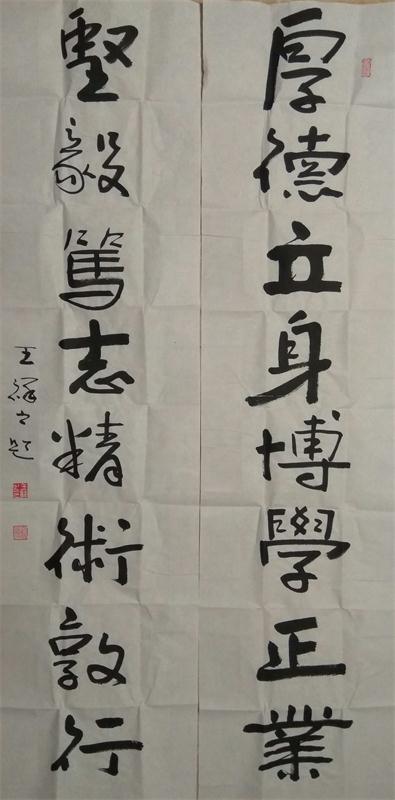 厚德立身博學正業
堅毅篤志精術敦行